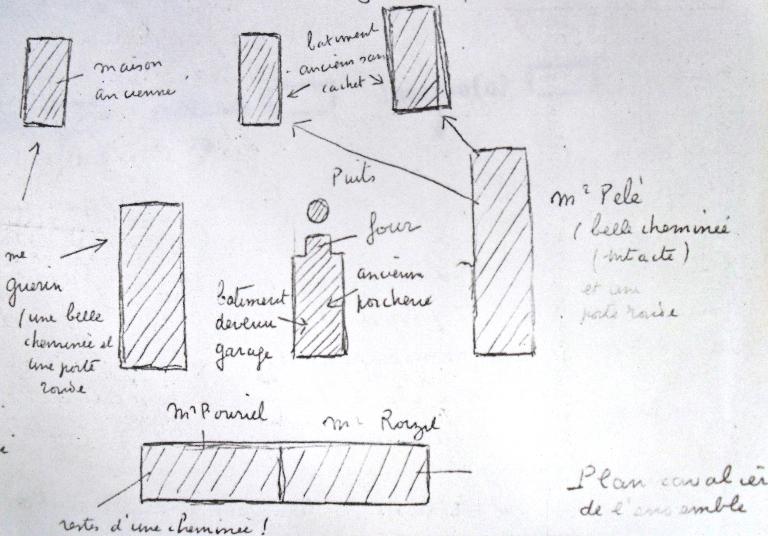 maison
ancienne
batiment
anciens sans
cachet
Puits
four
ancienne
porcherie
batiment
devenu
garage
me
guerin
(une belle
cheminée et
une porte
ronde
Mr Pelé
(belle cheminée
(intacte)
et une
porte ronde
Mr Pouriel
Mr
restes d'une cheminée !
Plan cavalier
de l'ensemble